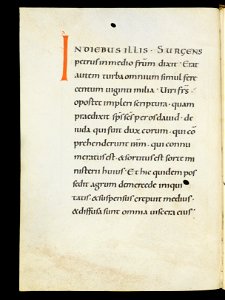 IN DIEBUS ILLIS · SURGENS
petrus in medio frum dixit · Erat
autem turba omnium simul fere
centum viginti milia · Uiri frs
oportet impleri scriptura · quam
praedixit sps scs per os dauid · de
iuda qui fuit dux eorum · qui cō
prehenderunt ihm · qui connu
meratus est & sortitus est sorte mi
nisterii huius · Et hic quidem pos
sedit agrum de mercede iniqui
tatis & suspensus crepuit medius ·
& diffusa sunt omnia uiscera eius